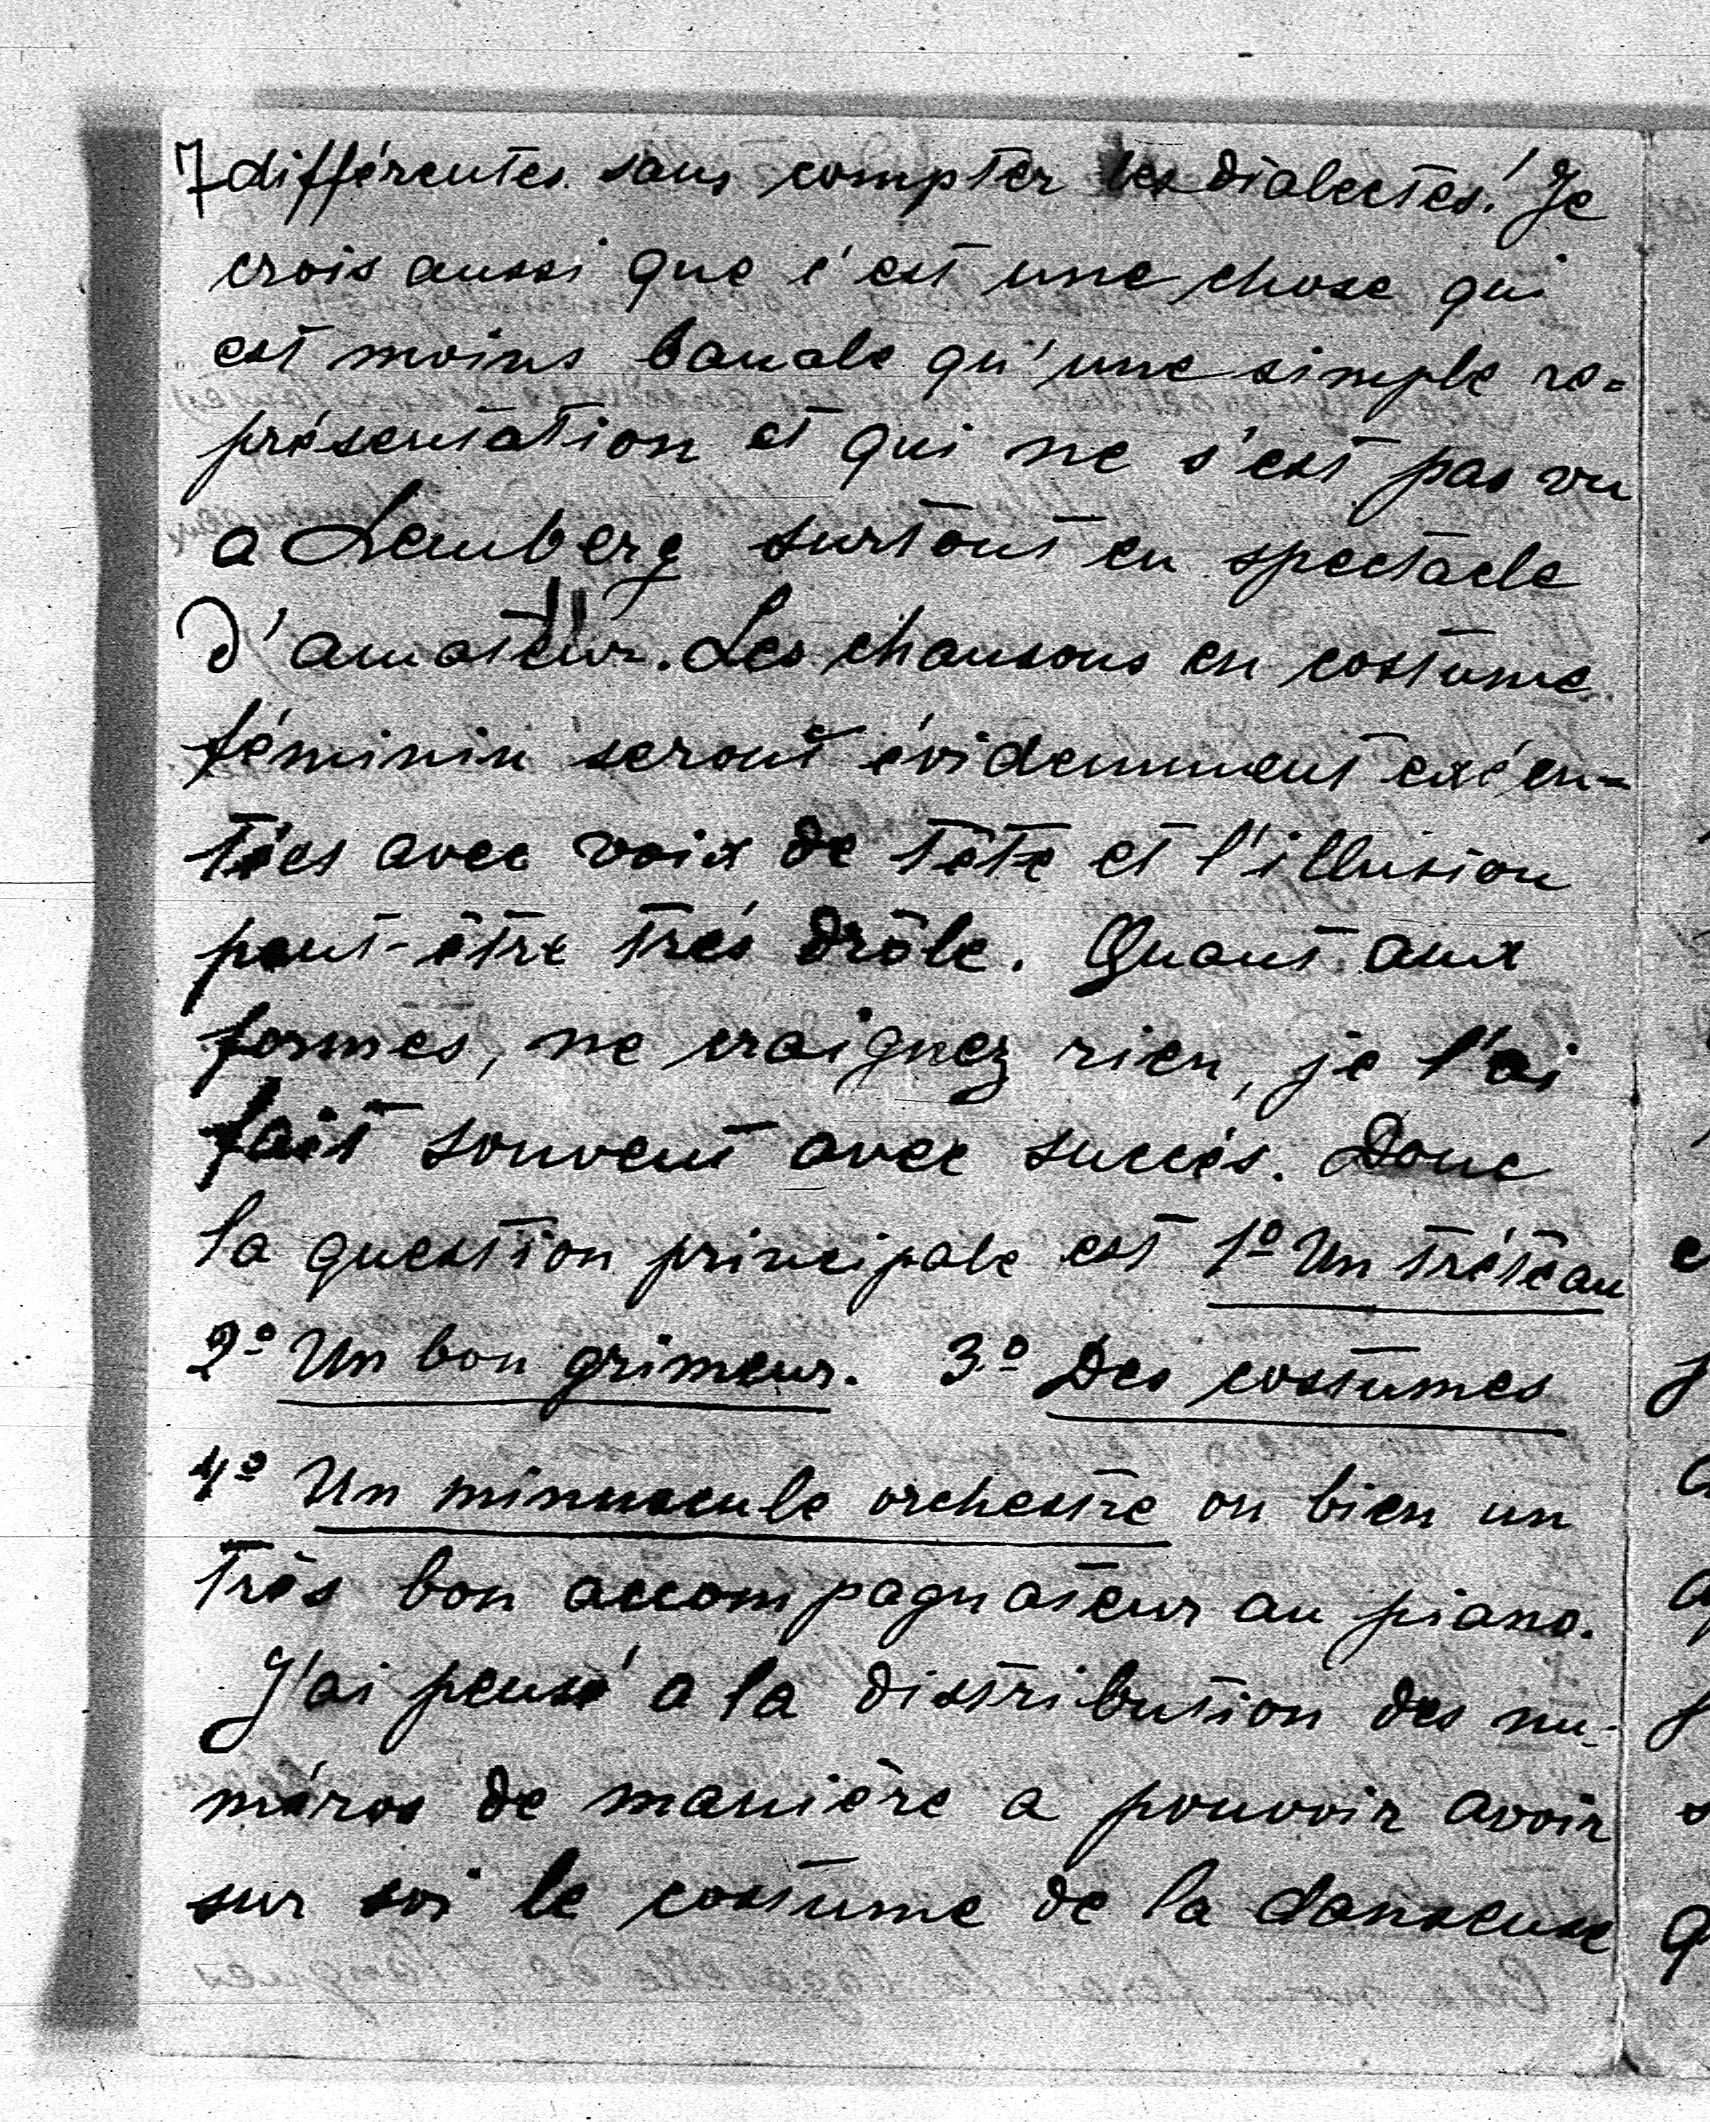 7 différentes sans compter les dialectes! Je
crois aussi que c'est une chose qui
est moins banale qu'une simple re=
présentation et qui ne s'est pas vu
a Lemberg surtout en spectacle
d'amateur. Les chansons en costume
féminin seront évidemment exécu=
tées avec voix de tête et l'illusion
peut-être très drôle. Quant aux
formes, ne craignez rien, je l'ai
fait souvent avec succès. Donc
la question principale est 1º Un tréteau
2º Un bon grimeur. 3º Des costumes
4º Un minuscule orchestre ou bien un
très bon accompagnateur au piano.
J'ai pensé a la distribution des nu-
méros de manière a pouvoir avoir
sur soi le costume de la danseuse